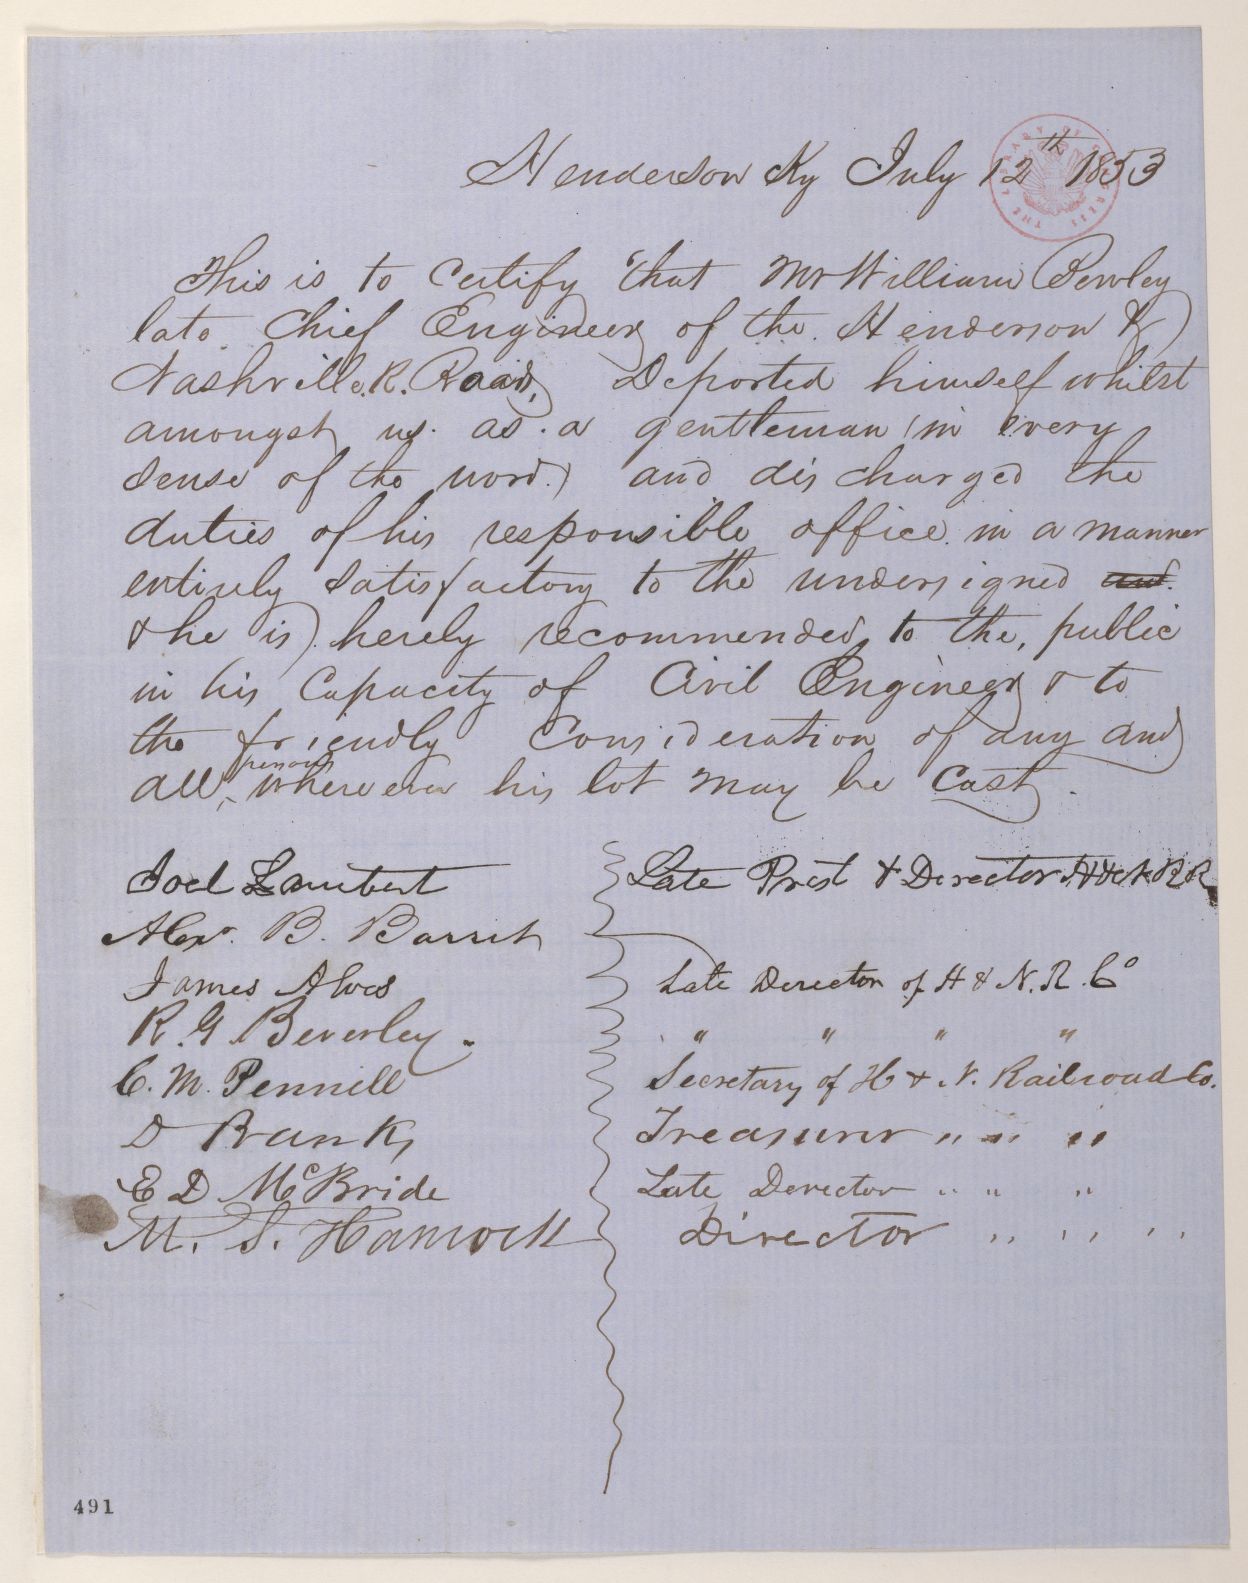 Henderson Ky July 12th 1853
THE LIBRARY OF CONGRESS
This is to certify that Mr William Pewley
late Chief Engineer of the Henderson &
Nashville R. Road, Deported himself whilst
amongst us as a gentleman (in every
sense of the word) and discharged the
duties of his responsible office in a manner
entirely satisfactory to the undersigned and
& he is hereby recommended to the public
in his capacity of Civil Engineer & to
the friendly consideration of any and
all persons where ever his lot may be cast.
Joel Lambert Late Prest & Director H & N R R
Alexr. B. Barret
James Alves Late Director of H & N. R. Co
R. G. Beverley. " " " "
C. M. Pennell Secretary of H & N. Railroad Co.
D Banks Treasurer " " "
E D McBride Late Director " " "
M. S. Hancock Director " " "
491